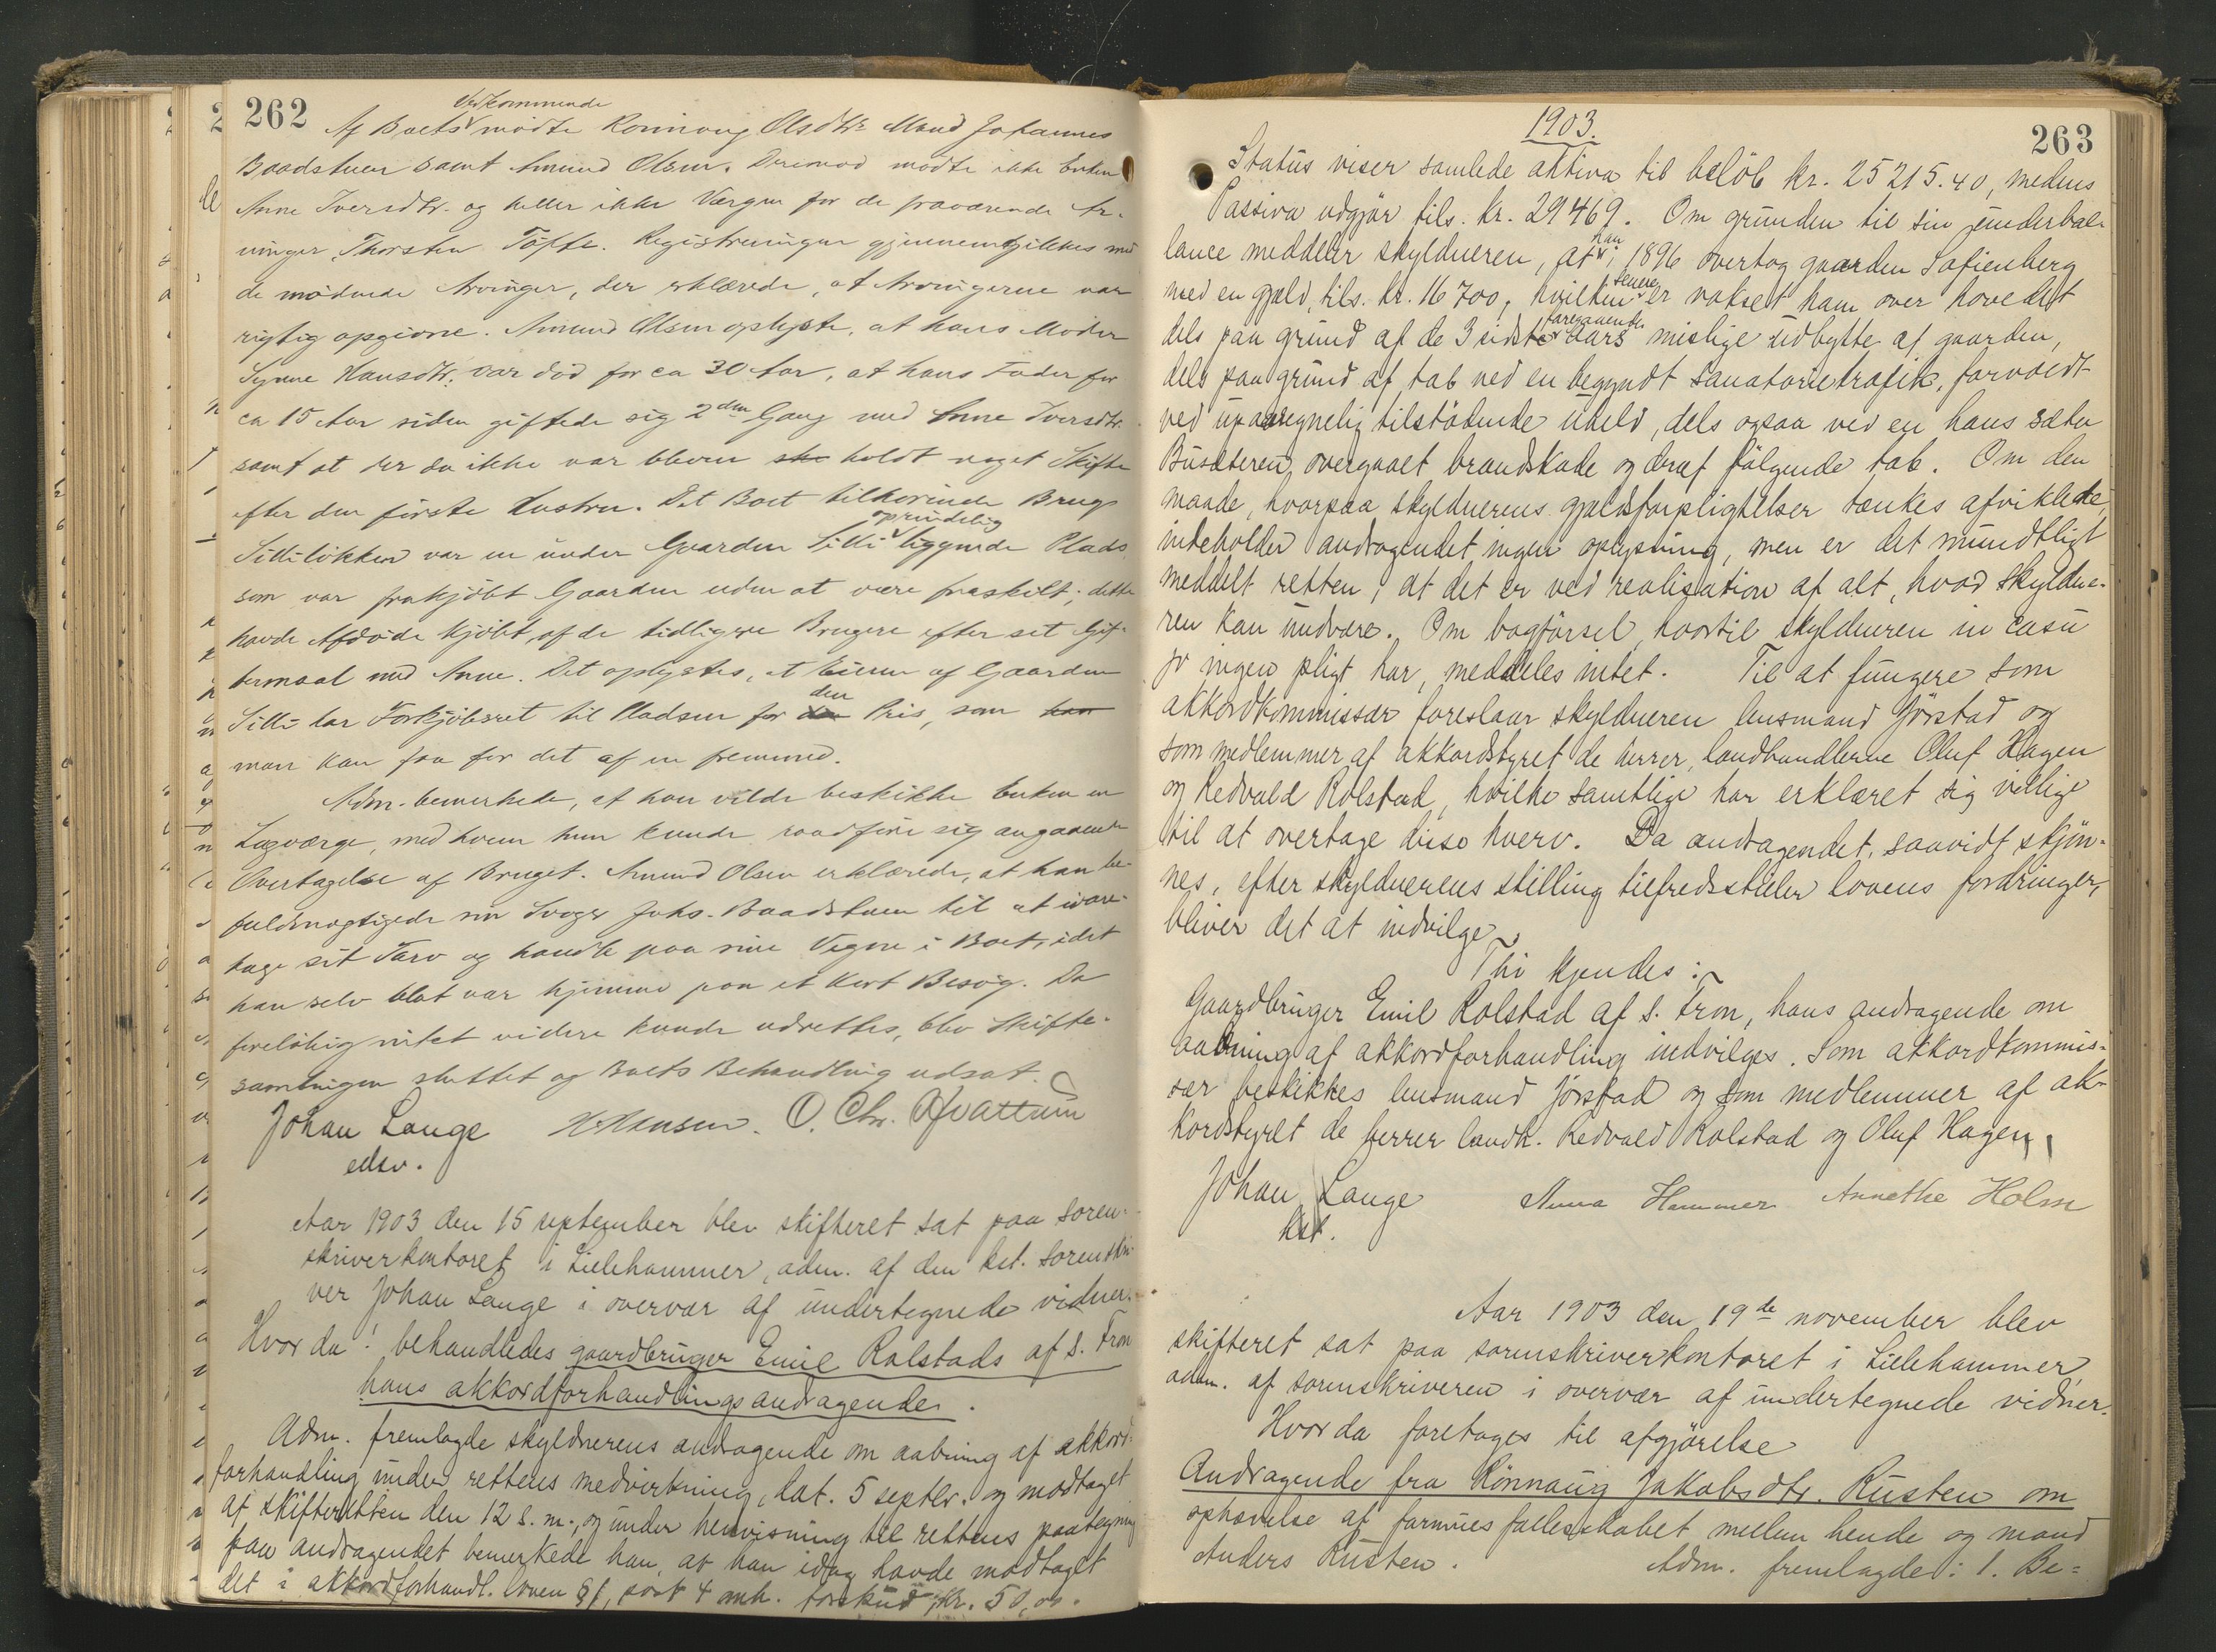 262
Vedkommende
Af Boets mødte Rønnoug Olsdtr. Mand Johannes
Baadstuen samt Amund Olsen. Derimod mødte ikke Enken
Anne Iversdtr. og heller ikke Værgen for de fraværende Ar-
vinger, Thorsten Tøffte. Registreringen gjennemgikkes med
de mødende Arvinger, der erklærede, at Arvingerne var
rigtig opgivne. Amund Olsen oplyste, at hans Moder
Synne Hansdtr. var død for ca 30 Aar, at hans Fader for
ca 15 Aar siden giftede sig 2den Gang med Anne Iversdtr.
samt at der da ikke var bleven holdt noget Skifte
efter den første Hustru. Det Boet tilhørende Brug
oprindelig
Silliløkken var en under Gaarden Silli liggende Plads,
som var frakjøbt Gaarden uden at være fraskilt; dette
havde Afdøde kjøbt af de tidligere Brugere efter sit Gif-
termaal med Anne. Det oplystes, at Eieren af Gaarden
den
Silli har Forkjøbsret til Pladsen for den Pris, som han
man kan faa for det af en fremmed.
Adm. bemerkede, at han vilde beskikke Enken en
Lagværge, med hvem hun kunde raadføre sig angaaende
Overtagelse af Bruget. Amund Olsen erklærede, at han be-
fuldmægtigede sin Svoger Johs. Baadstuen til at ivare-
tage sit Tarv og handle paa sine Vegne i Boet, idet
han selv blot var hjemme paa et kort Besøg. Da
foreløbig intet videre kunde udrettes, blev Skifte-
samlingen sluttet og Boets Behandling udsat.
Johan Lange HHansen. O. Chr. Kvattum
edsv.
Aar 1903 den 15 september blev skifteret sat paa soren-
skriverkontoret i Lillehammer, adm. af den kst. sorenskri-
ver Johan Lange i overvær af undertegnede vidner.
Hvor da! behandledes gaardbruger Emil Rolstads af S. Fron
hans akkordforhandlingsandragende.
Adm. fremlagde skyldnerens andragende om aabning af akkord-
forhandling under rettens medvirkning, dat. 5 septbr. og modtaget
af skifteretten den 12 s. m., og under henvisning til rettens paategning
paa andragendet bemerkede han, at han idag havde modtaget
det i akkordforhandl. loven § 1, post 4 omh. forskud, kr. 50,00.
1903.
263
Status viser samlede aktiva til beløb kr. 25215.40, medens
Passiva udgjør tils. kr. 29469. Om grunden til sin underbal-
han
lance meddeler skyldneren, at i 1896 overtog gaarden Sofienberg
senere
med en gjæld, tils. kr. 16700, hvilken er vokset ham over hovedet
foregaaende
dels paa grund af de 3 sidste aars mislige udbytte af gaarden,
dels paa grund af tab ved en begyndt sanatorietrafik, forvoldt
ved upaaregnelig tilstødende uheld, dels ogsaa ved en hans sæter
Busæteren, overgaaet brandskade og deraf følgende tab. Om den
maade, hvorpaa skyldnerens gjældsforpligtelser tænkes afviklede,
indeholder andragendet ingen oplysning, men er det mundtligt
meddelt retten, at det er ved realisation af alt, hvad skyldne-
ren kan undvære. Om bogførsel, hvortil skyldneren in casu
jo ingen pligt har, meddeles intet. Til at fungere som
akkordkommissær foreslaar skyldneren lensmand Jørstad og
som medlemmer af akkordstyret de herrer, landhandlerne Oluf Hagen
og Redvald Rolstad, hvilke samtlige har erklæret sig villige
til at overtage disse hverv. Da andragendet, saavidt skjøn-
nes, efter skyldnerens stilling tilfredsstiller lovens fordringer,
bliver det at indvilge.
Thi kjendes:
Gaardbruger Emil Rolstad af S. Fron, hans andragende om
aabning af akkordforhandling indvilges. Som akkordkommis-
sær beskikkes lensmand Jørstad og som medlemmer af ak-
kordstyret de herrer landh. Redvald Rolstad og Oluf Hagen.
Johan Lange Anna Hammer Annethe Holm
kst.
Aar 1903 den 19de november blev
skifteret sat paa sorenskriverkontoret i Lillehammer,
adm. af sorenskriveren i overvær af undertegnede vidner.
Hvor da foretoges til afgjørelse
Andragende fra Rønnaug Jakobsdtr. Rusten om
ophævelse af formuesfællesskabet mellem hende og mand
Anders Rusten. Adm. fremlagde: 1. Be=